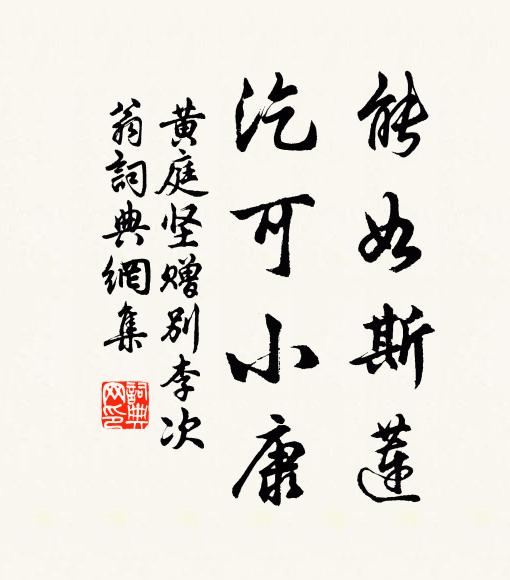 能如斯莲
汔可小康
黄庭坚赠别李次
翁词典網集
詞典网印